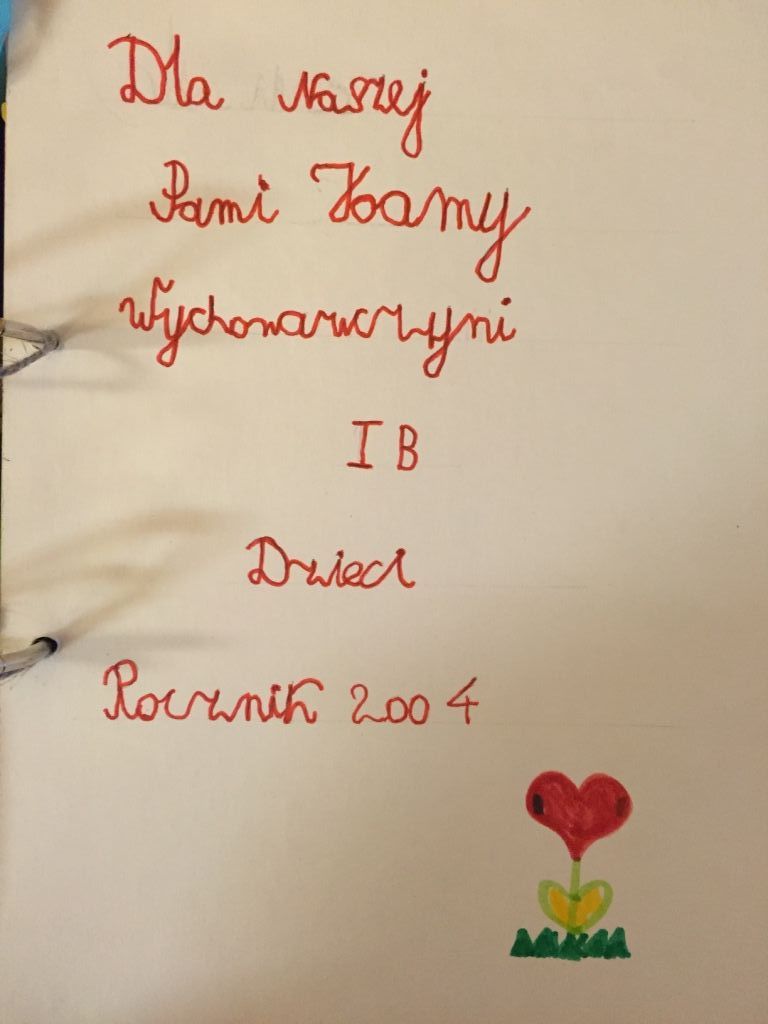 Dla Naszej
Pani
Wychowawczyni
I B
Dzieci
Rocznik 2004